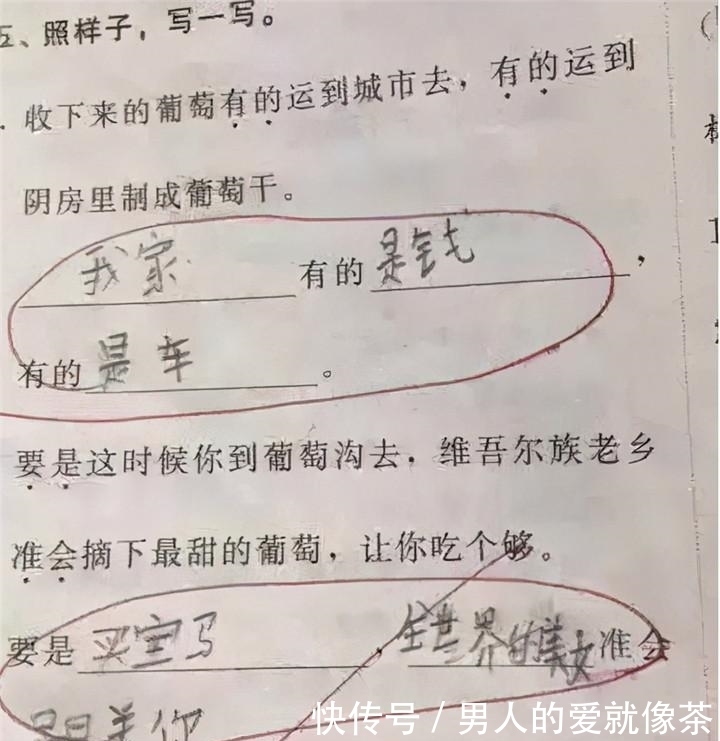 五、照样子，写一写。
收下来的葡萄有的运到城市去，有的运到
阴房里制成葡萄干。
我家有的是钱，
有的是车。
要是这时候你到葡萄沟去，维吾尔族老乡
准会摘下最甜的葡萄，让你吃个够。
要是买宝马，全世界的美女准会
跟着你
快传号/男人的爱就像茶